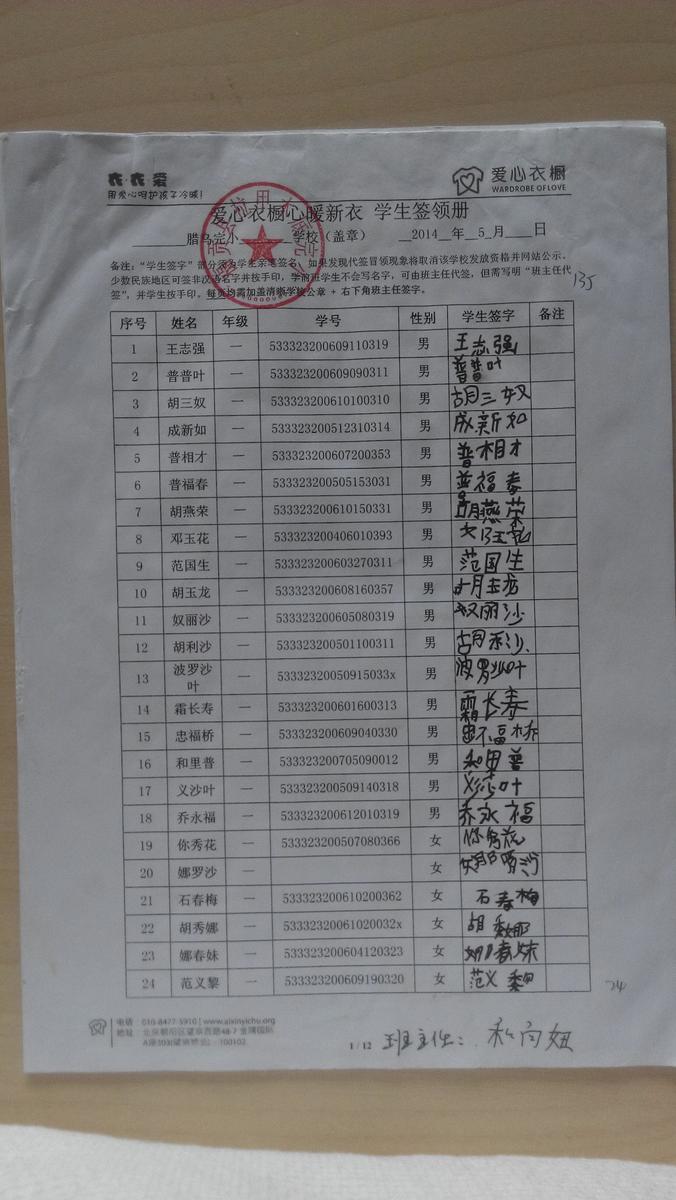 衣·衣 爱
用爱心呵护孩子冷暖!
爱心衣橱
WARDROBE OF LOVE
爱心衣橱心暖新衣 学生签领册
腊乌完小 学校（盖章） 2014 年 5 月 日
备注："学生签字"部分须为学生亲笔签名，如果发现代签冒领现象将取消该学校发放资格并网站公示。
少数民族地区可签非汉语名字并按手印，学前班学生不会写名字，可由班主任代签，但需写明"班主任代
签"，并学生按手印。每页均需加盖清晰学校公章 + 右下角班主任签字。
135
序号 姓名 年级 学号 性别 学生签字 备注
1 王志强 一 533323200609110319 男 王志强
2 普普叶 一 533323200609090311 男 普普叶
3 胡三奴 一 533323200610100310 男 胡三奴
4 成新如 一 533323200512310314 男 成新如
5 普相才 一 533323200607200353 男 普相才
6 普福春 一 533323200505153031 男 普福春
7 胡燕荣 一 533323200610150331 男 胡燕荣
8 邓玉花 一 533323200406010393 男
9 范国生 一 533323200603270311 男 范国生
10 胡玉龙 一 533323200608160357 男 胡玉龙
11 奴丽沙 一 533323200605080319 男 奴丽沙
12 胡利沙 一 533323200501100311 男 胡利沙
13 波罗沙叶 一 53332320050915033x 男
14 霜长寿 一 533323200601600313 男 霜长寿
15 忠福桥 一 533323200609040330 男
16 和里普 一 533323200705090012 男 和里普
17 义沙叶 一 533323200509140318 男 义沙叶
18 乔永福 一 533323200612010319 男 乔永福
19 你秀花 一 533323200507080366 女 你秀花
20 娜罗沙 一 女
21 石春梅 一 533323200610200362 女 石春梅
22 胡秀娜 一 53332320061020032x 女 胡秀娜
23 娜春妹 一 533323200604120323 女 娜春妹
24 范义黎 一 533323200609190320 女 范义黎
24
电话：010-8477-5910 | www.aixinyichu.org
地址：北京朝阳区望京西路48-7 金隅国际
A座303(望京桥北) · 100102
1 / 12
班主任：和向妞